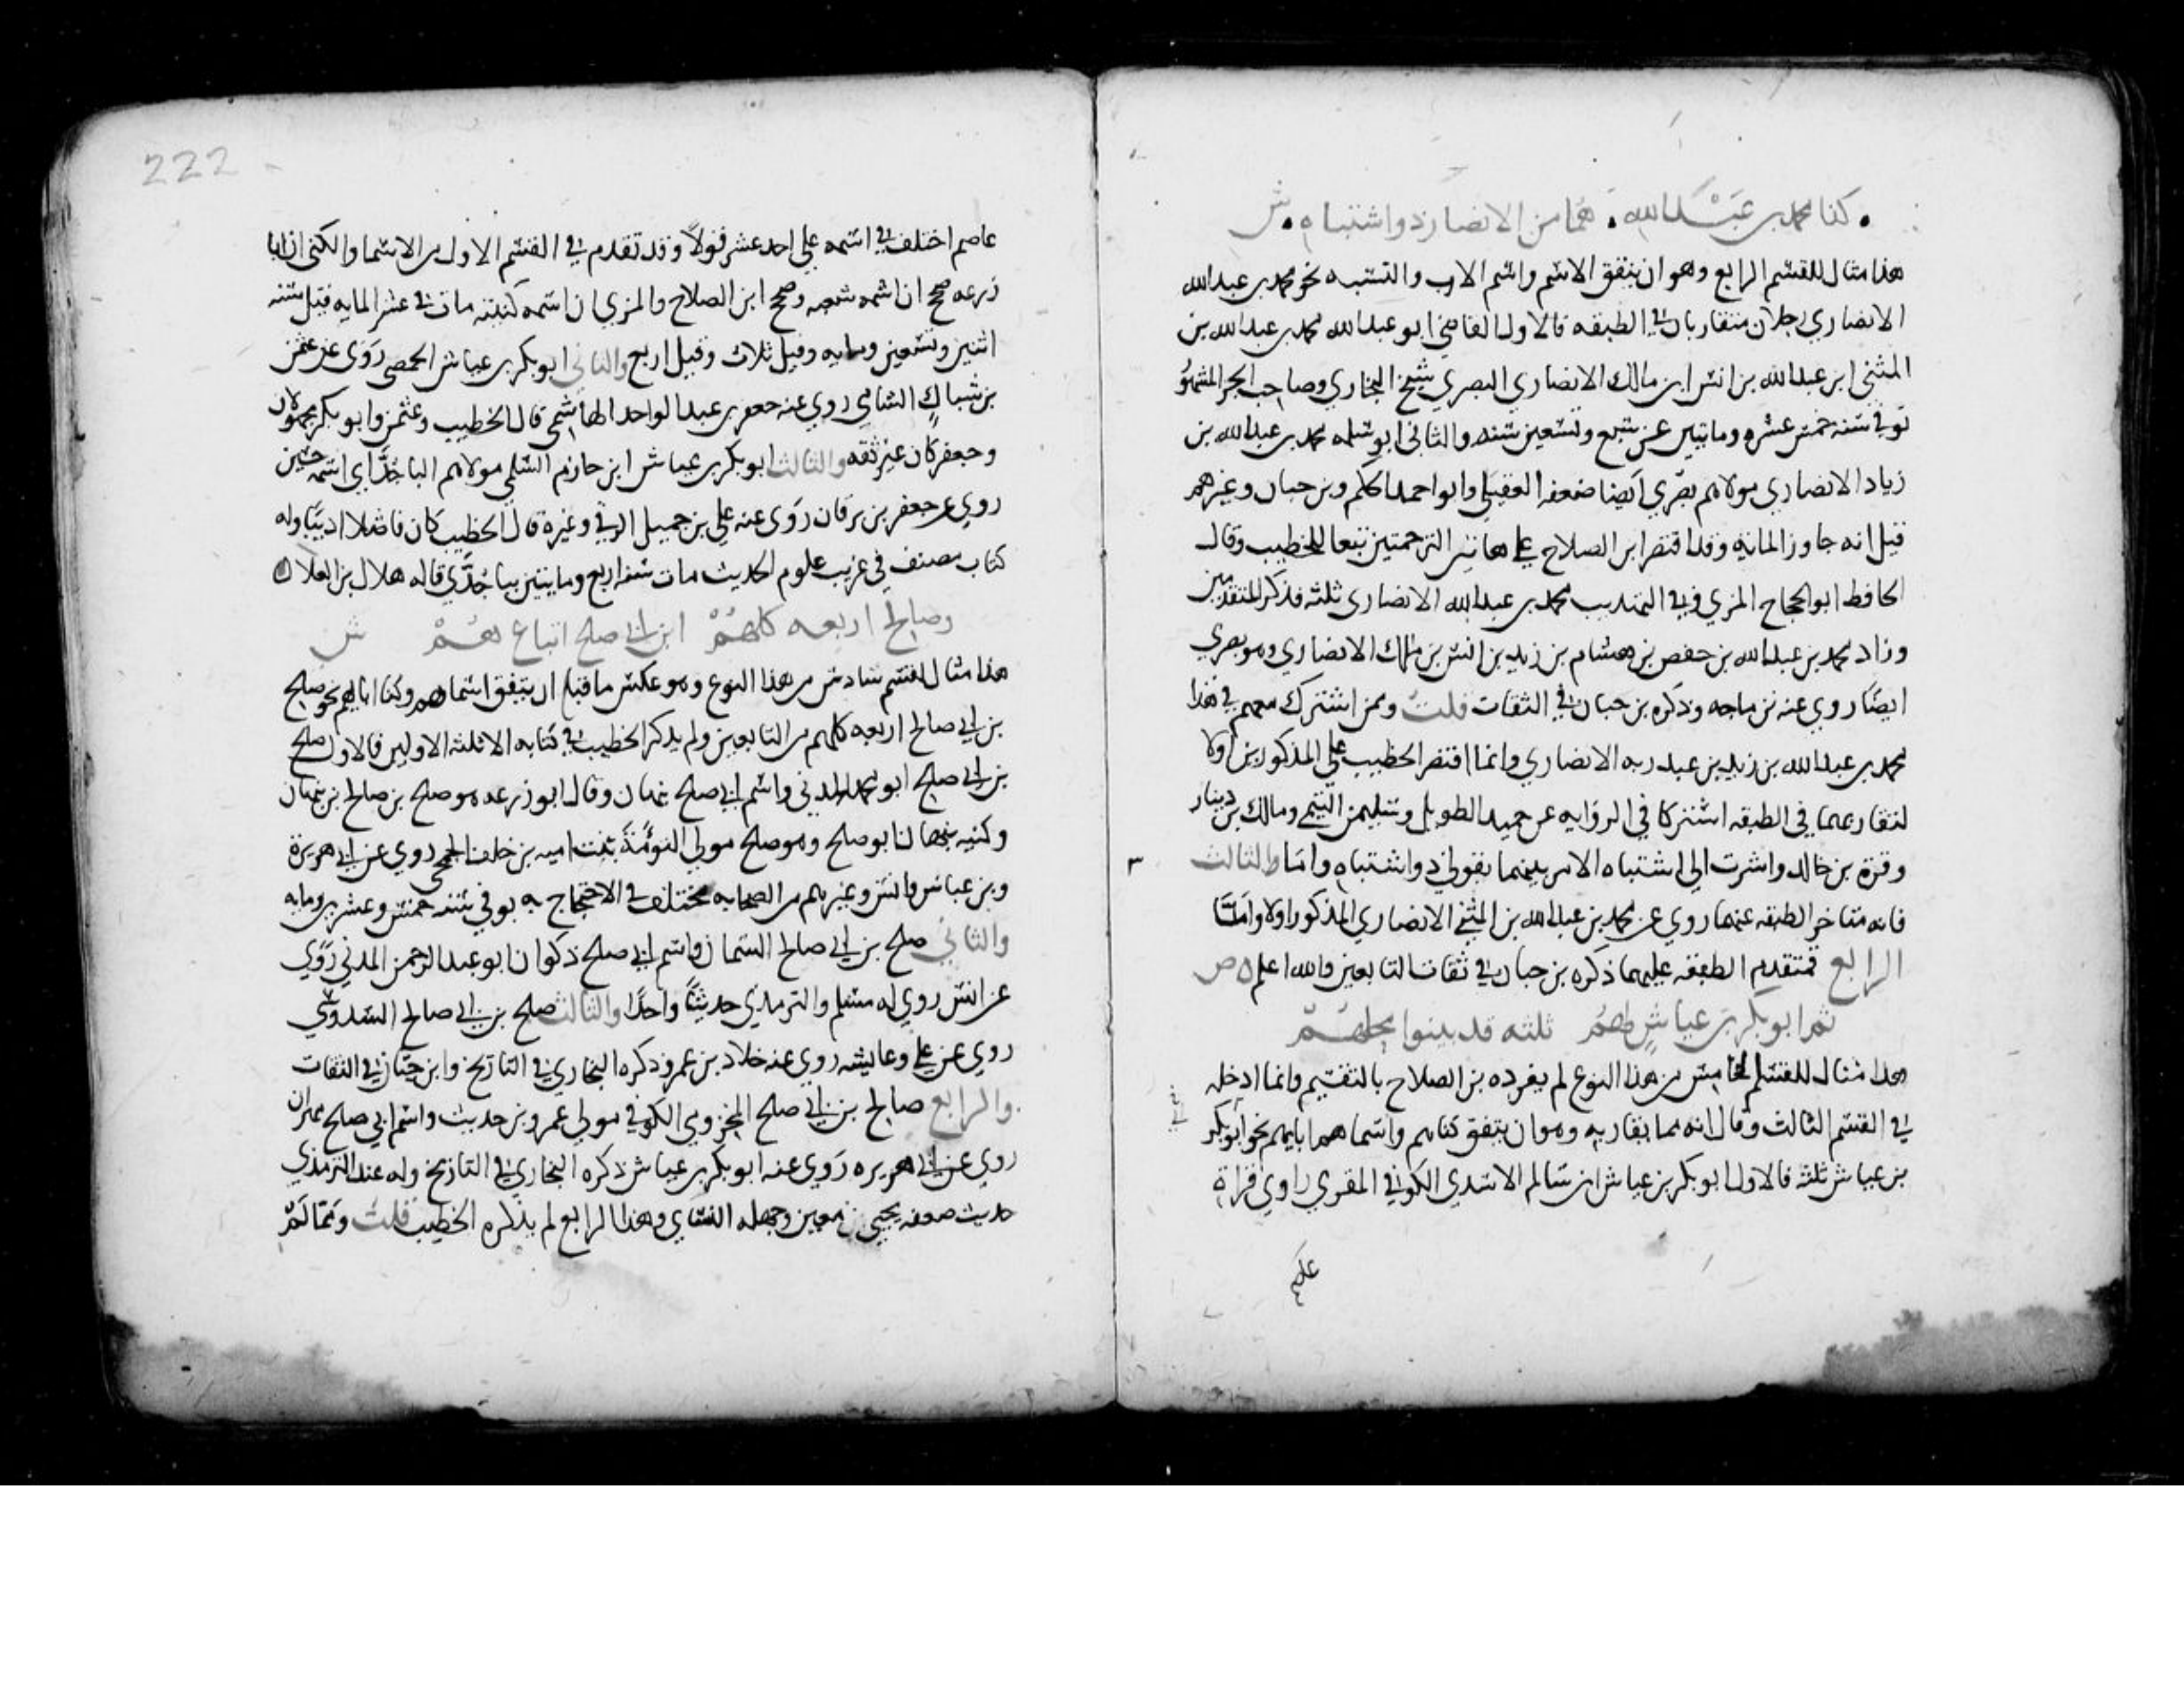 كذا محمد بن عبد الله • هما من الانصار ذو اشتباه • ش
هذا مثال للقسم الرابع وهو ان يتفق الاسم واسم الاب والنسبه نحو محمد بن عبد الله
الانصاري رجلان متقاربان في الطبقه فالاول القاضي ابو عبد الله محمد بن عبد الله بن
المثنى ابن عبد الله بن انس ابن مالك الانصاري البصري شيخ البخاري وصاحب الجز المشهور
توفي سنه خمس عشره ومايتين عن سبع وتسعين سنه والثاني ابو سلمه محمد بن عبد الله بن
زياد الانصاري مولاهم بصري ايضا ضعفه العقيلي وابو احمد الحاكم وبن حبان وغيرهم
قيل انه جاوز المائة وقد اقتصر ابن الصلاح على هاتين الترجمتين تبعا للخطيب وقال
الحافظ ابو الحجاج المزي في التهذيب محمد بن عبد الله الانصاري ثلثه فذكر المتقدمين
وزاد محمد بن عبد الله بن حفص بن هشام بن زيد بن انس بن ملك الانصاري وهو بصري
ايضا روي عنه بن ماجه وذكره بن حبان في الثقات قلت وممن اشترك معهم في هذا
محمد بن عبد الله بن زيد بن عبد ربه الانصاري وانما اقتصر الخطيب على المذكورين اولا
لتقاربهما في الطبقه اشتركا في الروايه عن حميد الطويل وسليمن التيمي ومالك بن دينار
وقرة بن خالد واشرت الى اشتباه الامر بينهما بقولي ذو اشتباه واما الثالث
فانه متاخر الطبقه عنهما روي عن محمد بن عبد الله بن المثنى الانصاري المذكور اولا واما
الرابع فمتقدم الطبقه عليهما ذكره بن حبان في ثقات التابعين والله اعلم ص
ثم ابو بكر بن عياش لهم ثلثه قد بينوا محلهم
هذا مثال للقسم الخامس من هذا النوع لم يفرده بن الصلاح بالتقسيم وانما ادخله
في القسم الثالث وقال انه مما يقاربه وهو ان يتفق كناهم واسما همما بايهم نحو ابو بكر
بن عياش ثلثه فالاول ابو بكر بن عياش ابن سالم الاسدي الكوفي المقري راوي قراة
222
عاصم اختلف في اسمه على احد عشر قولا وقد تقدم في القسم الاول من الاسما والكنى ان ابا
زرعه صحح ان اسمه شعبه وصحح ابن الصلاح والمزي ان اسمه كنيته مات في عشر المايه قيل سنه
اثنين وتسعين ومايه وقيل ثلاث وقيل اربع والثاني ابو بكر بن عياش الحمصي روى عن عثمن
بن شباك الشامي روي عنه جعفر بن عبد الواحد الهاشمي قال الخطيب وعثمن وابو بكر مجهولان
وجعفر كان غير ثقه والثالث ابو بكر بن عياش ابن حازم السلمي مولاهم الباجدّاي اسمه حسين
روي عن جعفر بن برقان روى عنه علي بن جميل الرقي وغيره قال الخطيب كان فاضلا اديبا وله
كتاب مصنف في غريب علوم الحديث مات سنه اربع ومايتين بباجدّي قاله هلال بن العلا
وصالح اربعه كلهم ابن ابي صلح اتباع هم ش
هذا مثال لقسم سادس من هذا النوع وهو عكس ما قبله ان يتفق اسماهم وكنا ابايهم نحو صلح
بن ابي صالح اربعه كلهم من التابعين ولم يذكر الخطيب في كتابه الا ثلثه الاولين فالاول صلح
بن ابي صلح ابو محمد المدني واسم ابي صلح نبهان وقال ابو زرعه هو صلح بن صالح بن نبهان
وكنيه نبهان ابو صلح وهو صلح مولى التوءمة بنت اميه بن خلف الجمحي روي عن ابي هريرة
وبن عباس وانس وغيرهم من الصحابه مختلف في الاحتجاج به توفي سنه خمس وعشرين ومايه
والثاني صلح بن ابي صالح السمان واسم ابي صلح ذكوان ابو عبد الرحمن المدني روي
عن انس روي له مسلم والترمذي حديثا واحدا والثالث صلح بن ابي صالح السدوسي
روي عن علي وعايشه روي عنه خلاد بن عمرو ذكره البخاري في التاريخ وابن حبان في الثقات
والرابع صالح بن ابي صلح المخزومي الكوفي مولى عمرو بن حريث واسم ابي صلح مهران
روي عن ابي هريره روي عنه ابو بكر بن عياش ذكره البخاري في التاريخ وله عند الترمذي
حديث ضعفه يحيى بن معين وجهله النساي وهذا الرابع لم يذكره الخطيب قلت ومما لم